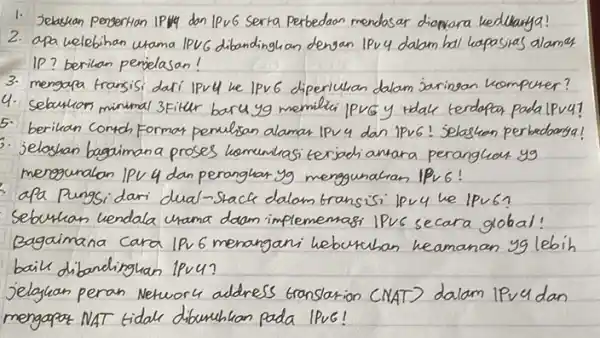 1. Jelaskan pengertian IPv4 dan IPv6 serta perbedaan mendasar diantara keduanya!
2. apa kelebihan utama IPv6 dibandingkan dengan IPv4 dalam hal kapasitas alamat
IP? berikan penjelasan!
3. mengapa transisi dari IPv4 ke IPv6 diperlukan dalam jaringan komputer?
4. Sebutkan minimal 3 Fitur baru yg memiliki IPv6 y tdak terdapat pada IPv4!
5. berikan Contoh Format penulisan alamat IPv4 dan IPv6! jelaskan perbedaanya!
jelaskan bagaimana proses komunikasi terjadi antara perangkat yg
menggunakan IPv4 dan perangkat yg menggunakan IPv6!
apa Pungsi dari dual-Stack dalam transisi IPv4 ke IPv6?
Sebutkan kendala utama dalam implementasi IPv6 secara global!
Bagaimana Cara IPv6 menangani kebutuhan keamanan yg lebih
baik dibandingkan IPv4?
jelaskan peran Network address translation (NAT) dalam IPv4 dan
mengapa NAT tidak dibutuhkan pada IPv6!